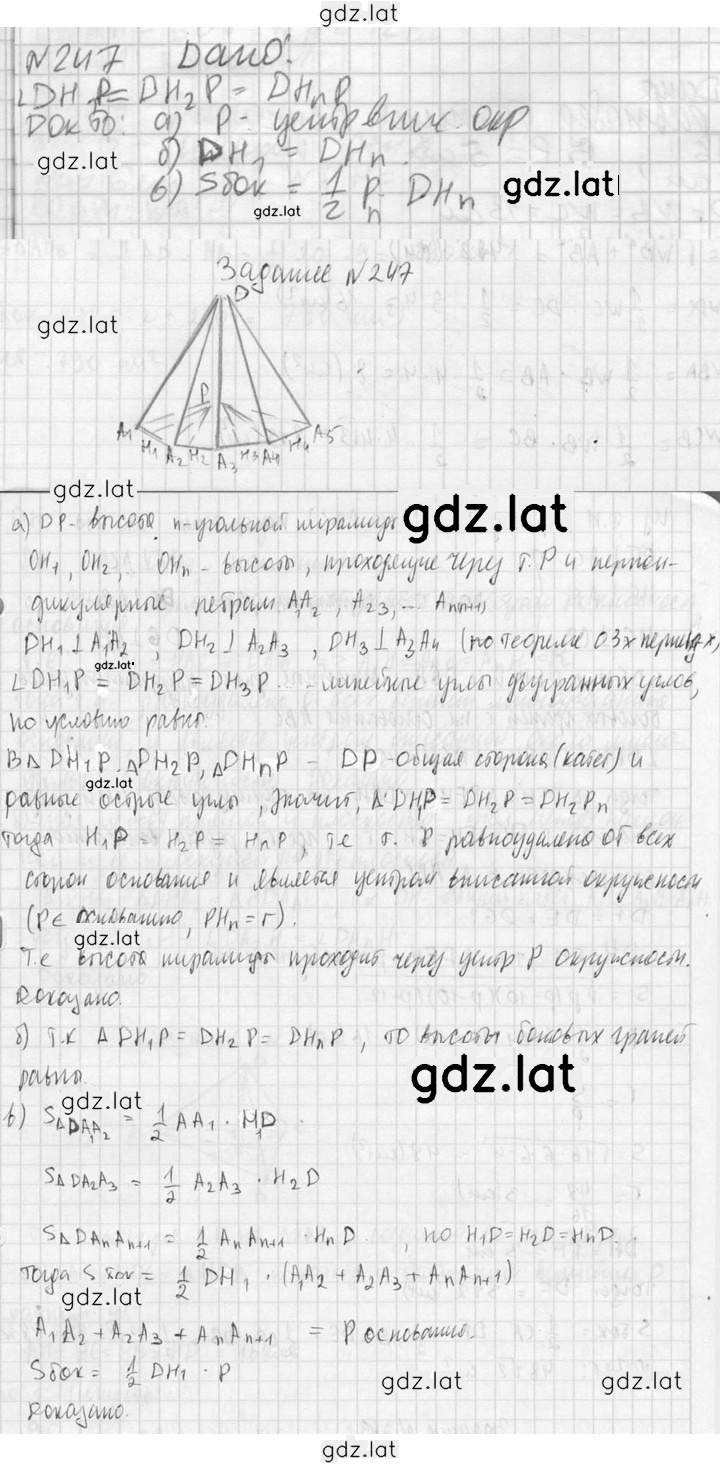 gdz.lat
N247 Дано:
∠DH₁P = DH₂P = DHnP
Док-ть: а) P - центр впис. окр
gdz.lat
б) DH₁ = DHn.
в) Sбок = 1/2 Pn · DHn
gdz.lat
gdz.lat
Задание N247
gdz.lat
D
P
A₁ H₁ A₂ H₂ A₃ H₃ A₄ H₄ A₅
gdz.lat
gdz.lat
а) DP - высота n-угольной пирамиды
OH₁, OH₂, ... OHn - высоты, проходящие через т. P и перпен-
дикулярные ребрам A₁A₂, A₂₃, ... An(n+1)
DH₁ ⊥ A₁A₂, DH₂ ⊥ A₂A₃, DH₃ ⊥ A₃A₄ (по теореме о 3х перпенд-х,
gdz.lat
∠DH₁P = DH₂P = DH₃P ... - линейные углы двугранных углов,
по условию равны.
В △ DH₁P, △DH₂P, △DHnP - DP - общая сторона (катет) и
gdz.lat
равные острые углы, значит, △ DH₁P = DH₂P = DH₂Pn
тогда H₁P = H₂P = HnP, т.е т. P равноудалена от всех
сторон основания и является центром вписанной окружности
(P∈ основанию, PHn = r).
gdz.lat
Т.е высота пирамиды проходит через центр P окружности.
Доказано.
б) т.к △ DH₁P = DH₂P = DHnP, то высоты боковых граней
равны.
gdz.lat
gdz.lat
в) S△DA₁A₂ = 1/2 AA₁ · H₁D
S△DA₂A₃ = 1/2 A₂A₃ · H₂D
S△DAnAn+1 = 1/2 AnAn+1 · HnD, но H₁D = H₂D = HnD.
Тогда Sбок = 1/2 DH₁ · (A₁A₂ + A₂A₃ + AnAn+1)
gdz.lat
A₁A₂ + A₂A₃ + AnAn+1 = P основания.
Sбок = 1/2 DH₁ · P
gdz.lat
gdz.lat
Доказано.
gdz.lat